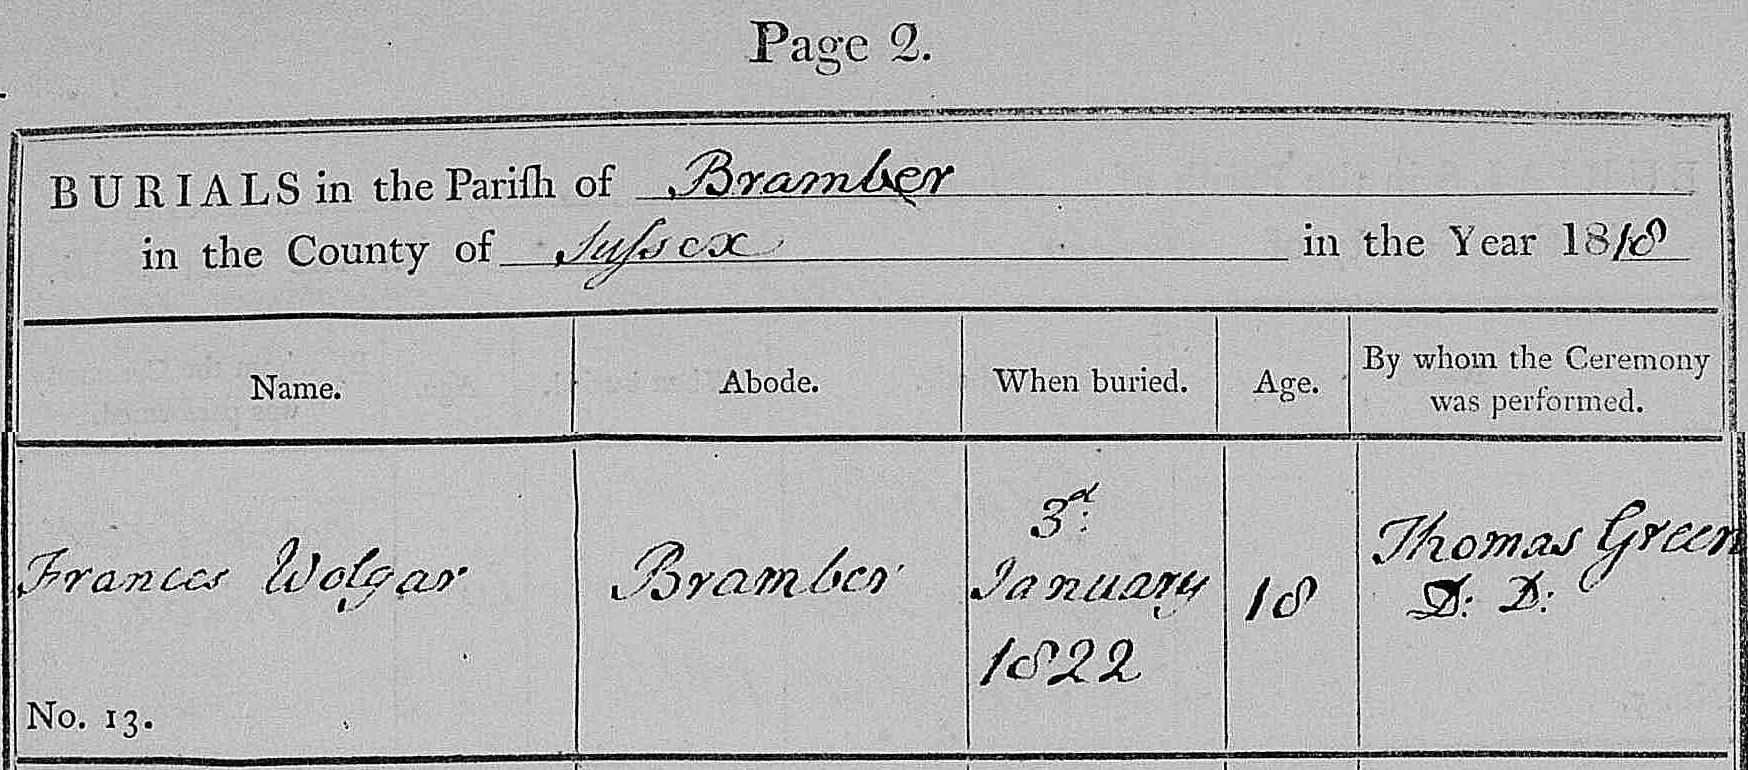 Page 2.
BURIALS in the Pariſh of Bramber
in the County of Suſsex in the Year 1818
Name. Abode. When buried. Age. By whom the Ceremony
was performed.
Frances Wolgar Bramber 3d: January 1822 18 Thomas Green D: D:
No. 13.